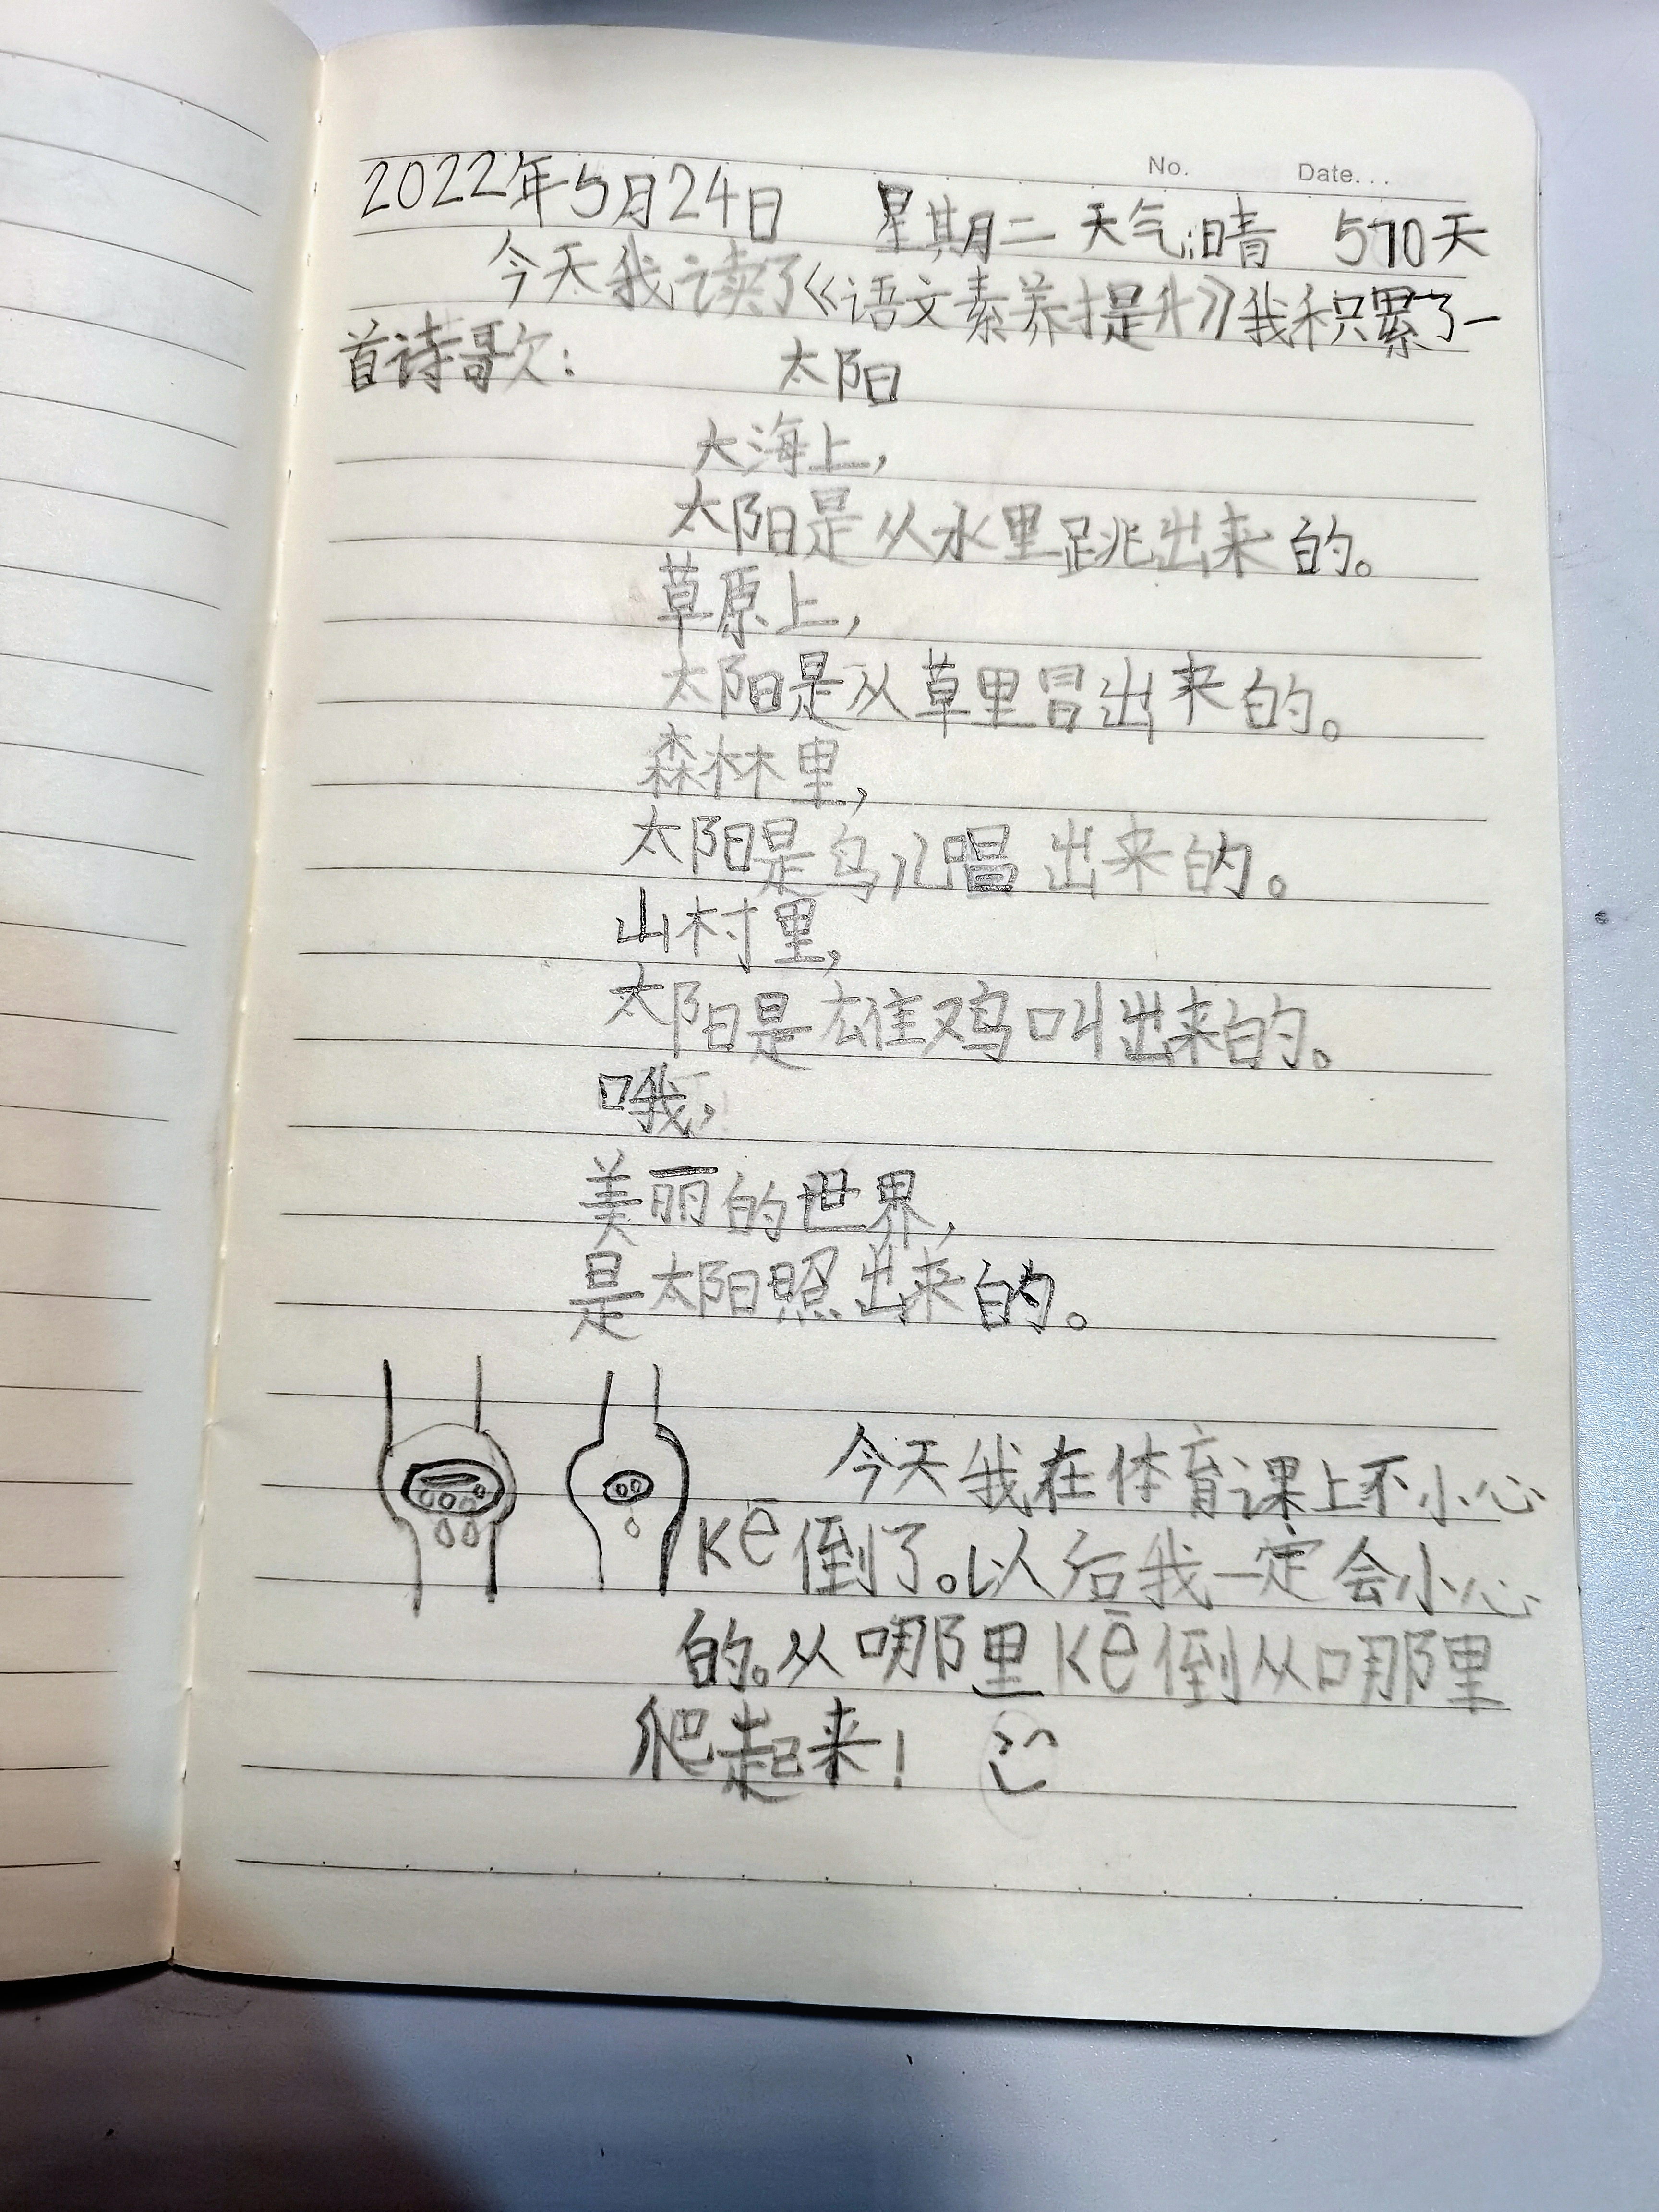 No. Date...
2022年5月24日 星期二 天气:晴 570天
今天我读了《语文素养提升》我积累了一
首诗歌: 太阳
大海上,
太阳是从水里跳出来的。
草原上,
太阳是从草里冒出来的。
森林里,
太阳是鸟儿唱出来的。
山村里,
太阳是雄鸡叫出来的。
哦,
美丽的世界,
是太阳照出来的。
今天我在体育课上不小心
kē倒了。以后我一定会小心
的。从哪里kē倒从哪里
爬起来!